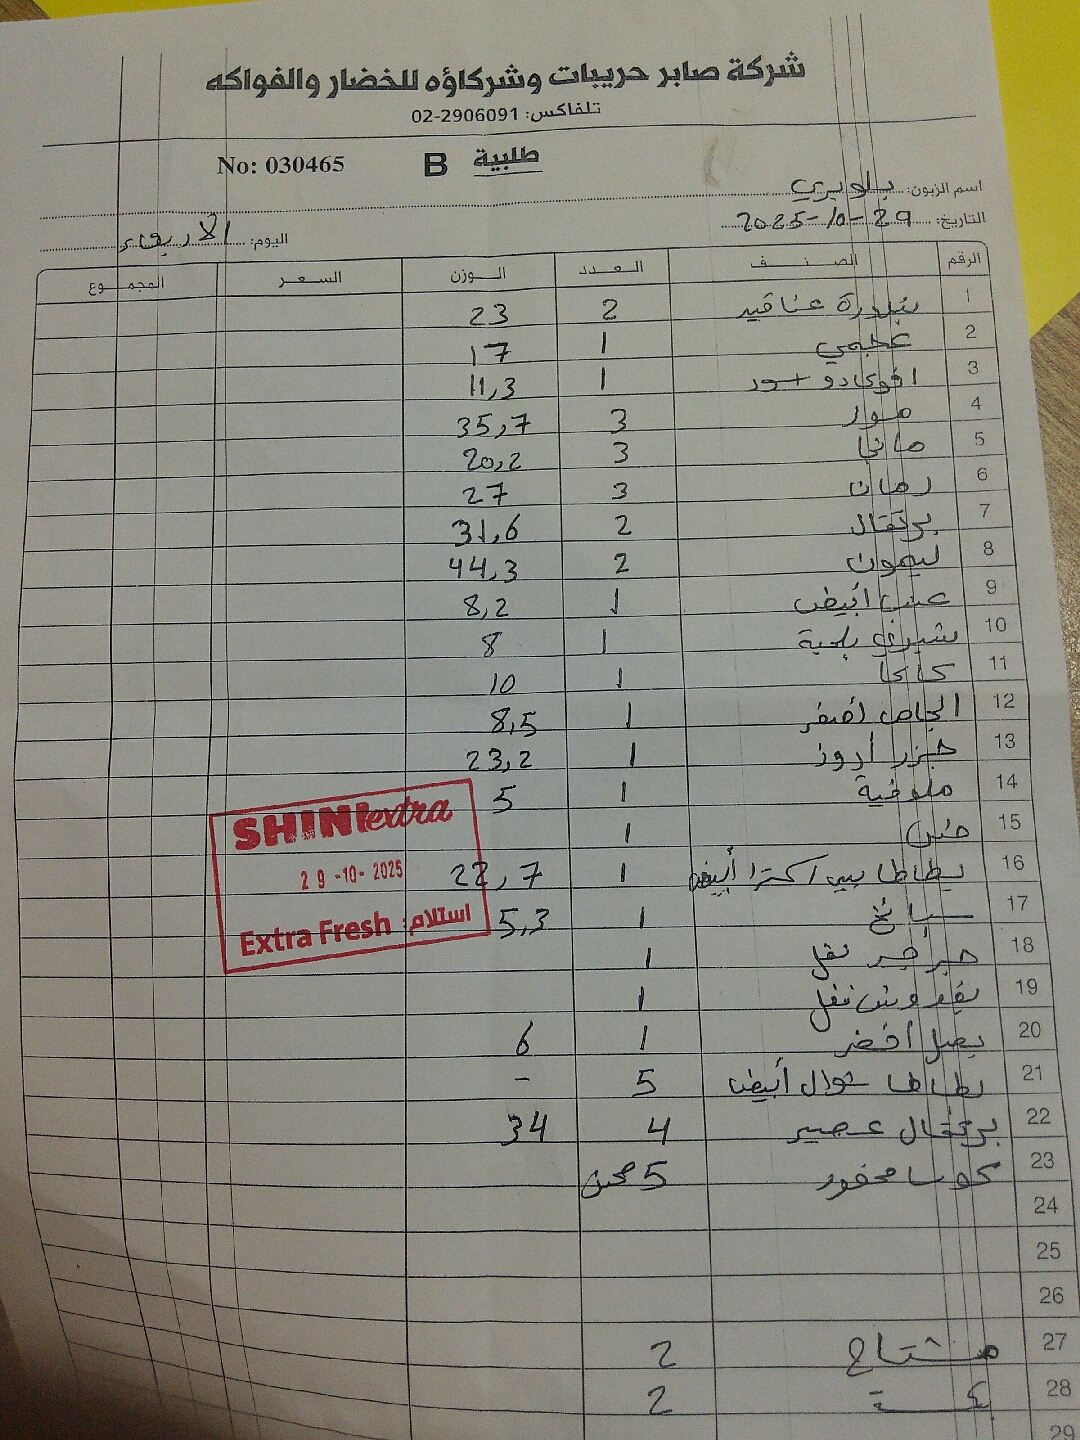 شركة صابر حريبات وشركاؤه للخضار والفواكه
تلفاكس: 02-2906091
طلبية B No: 030465
اسم الزبون:
التاريخ: 29-10-2025 اليوم: الأربعاء
الرقم الصنف العدد الوزن السعر المجموع
1 بندورة عناقيد 2 23
2 عجمي 1 17
3 افوكادو 1 11,3
4 موز 3 35,7
5 مانجا 3 20,2
6 رمان 3 27
7 برتقال 2 31,6
8 ليمون 2 44,3
9 عنب أبيض 1 8,2
10 شيري بلحية 1 8
11 كاكا 1 10
12 انجاص أصفر 1 8,5
13 جزر أدوز 1 23,2
14 ملوخية 1 5
15 1
16 بطاطا بيبي اكسترا أبيض 1 22,7
17 سبانخ 1 5,3
18 جرجير نقل 1
19 بقدونس نقل 1
20 بصل أخضر 1 6
21 بطاطا شوال أبيض 5 -
22 برتقال عصير 4 34
23 كوسا محفور 5 صحن
24
25
26
27 مشتاح 2
28 2
29
SHINI extra
29-10-2025
استلام: Extra Fresh